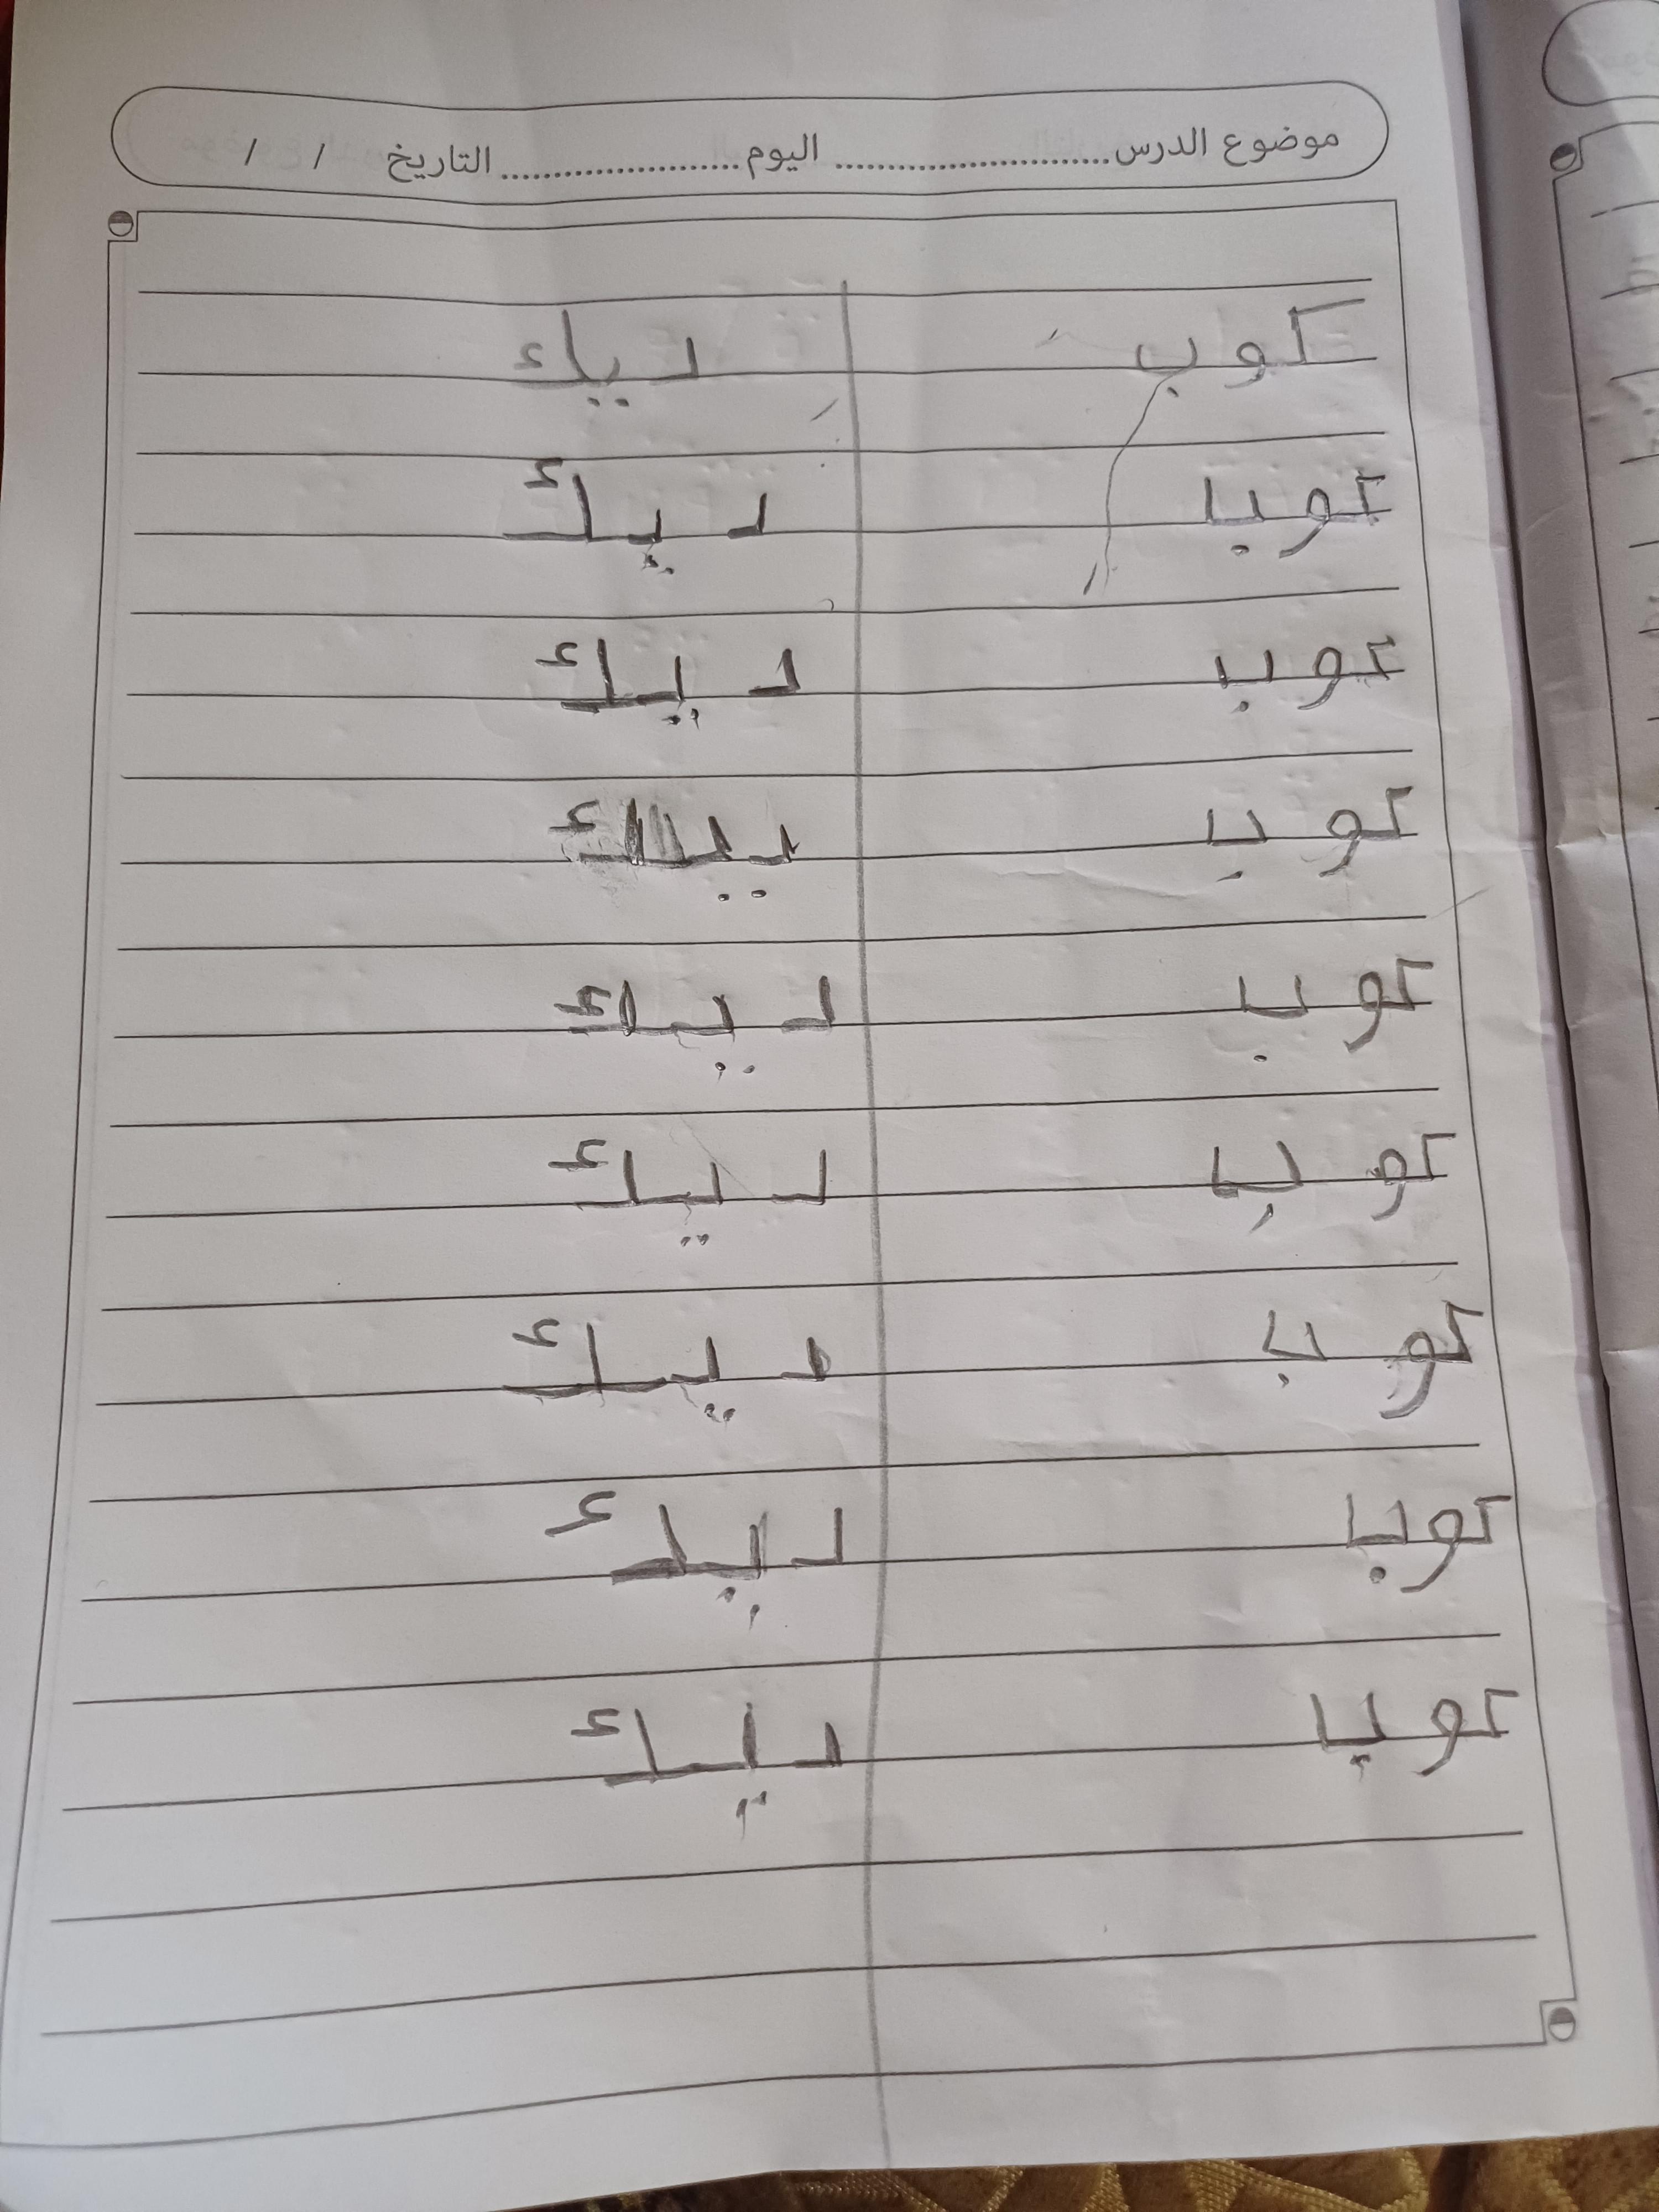 موضوع الدرس........................ اليوم........................ التاريخ / /
كوب ديك
كوب ديك
كوب ديك
كوب ديك
كوب ديك
كوب ديك
كوب ديك
كوب ديك
كوب ديك